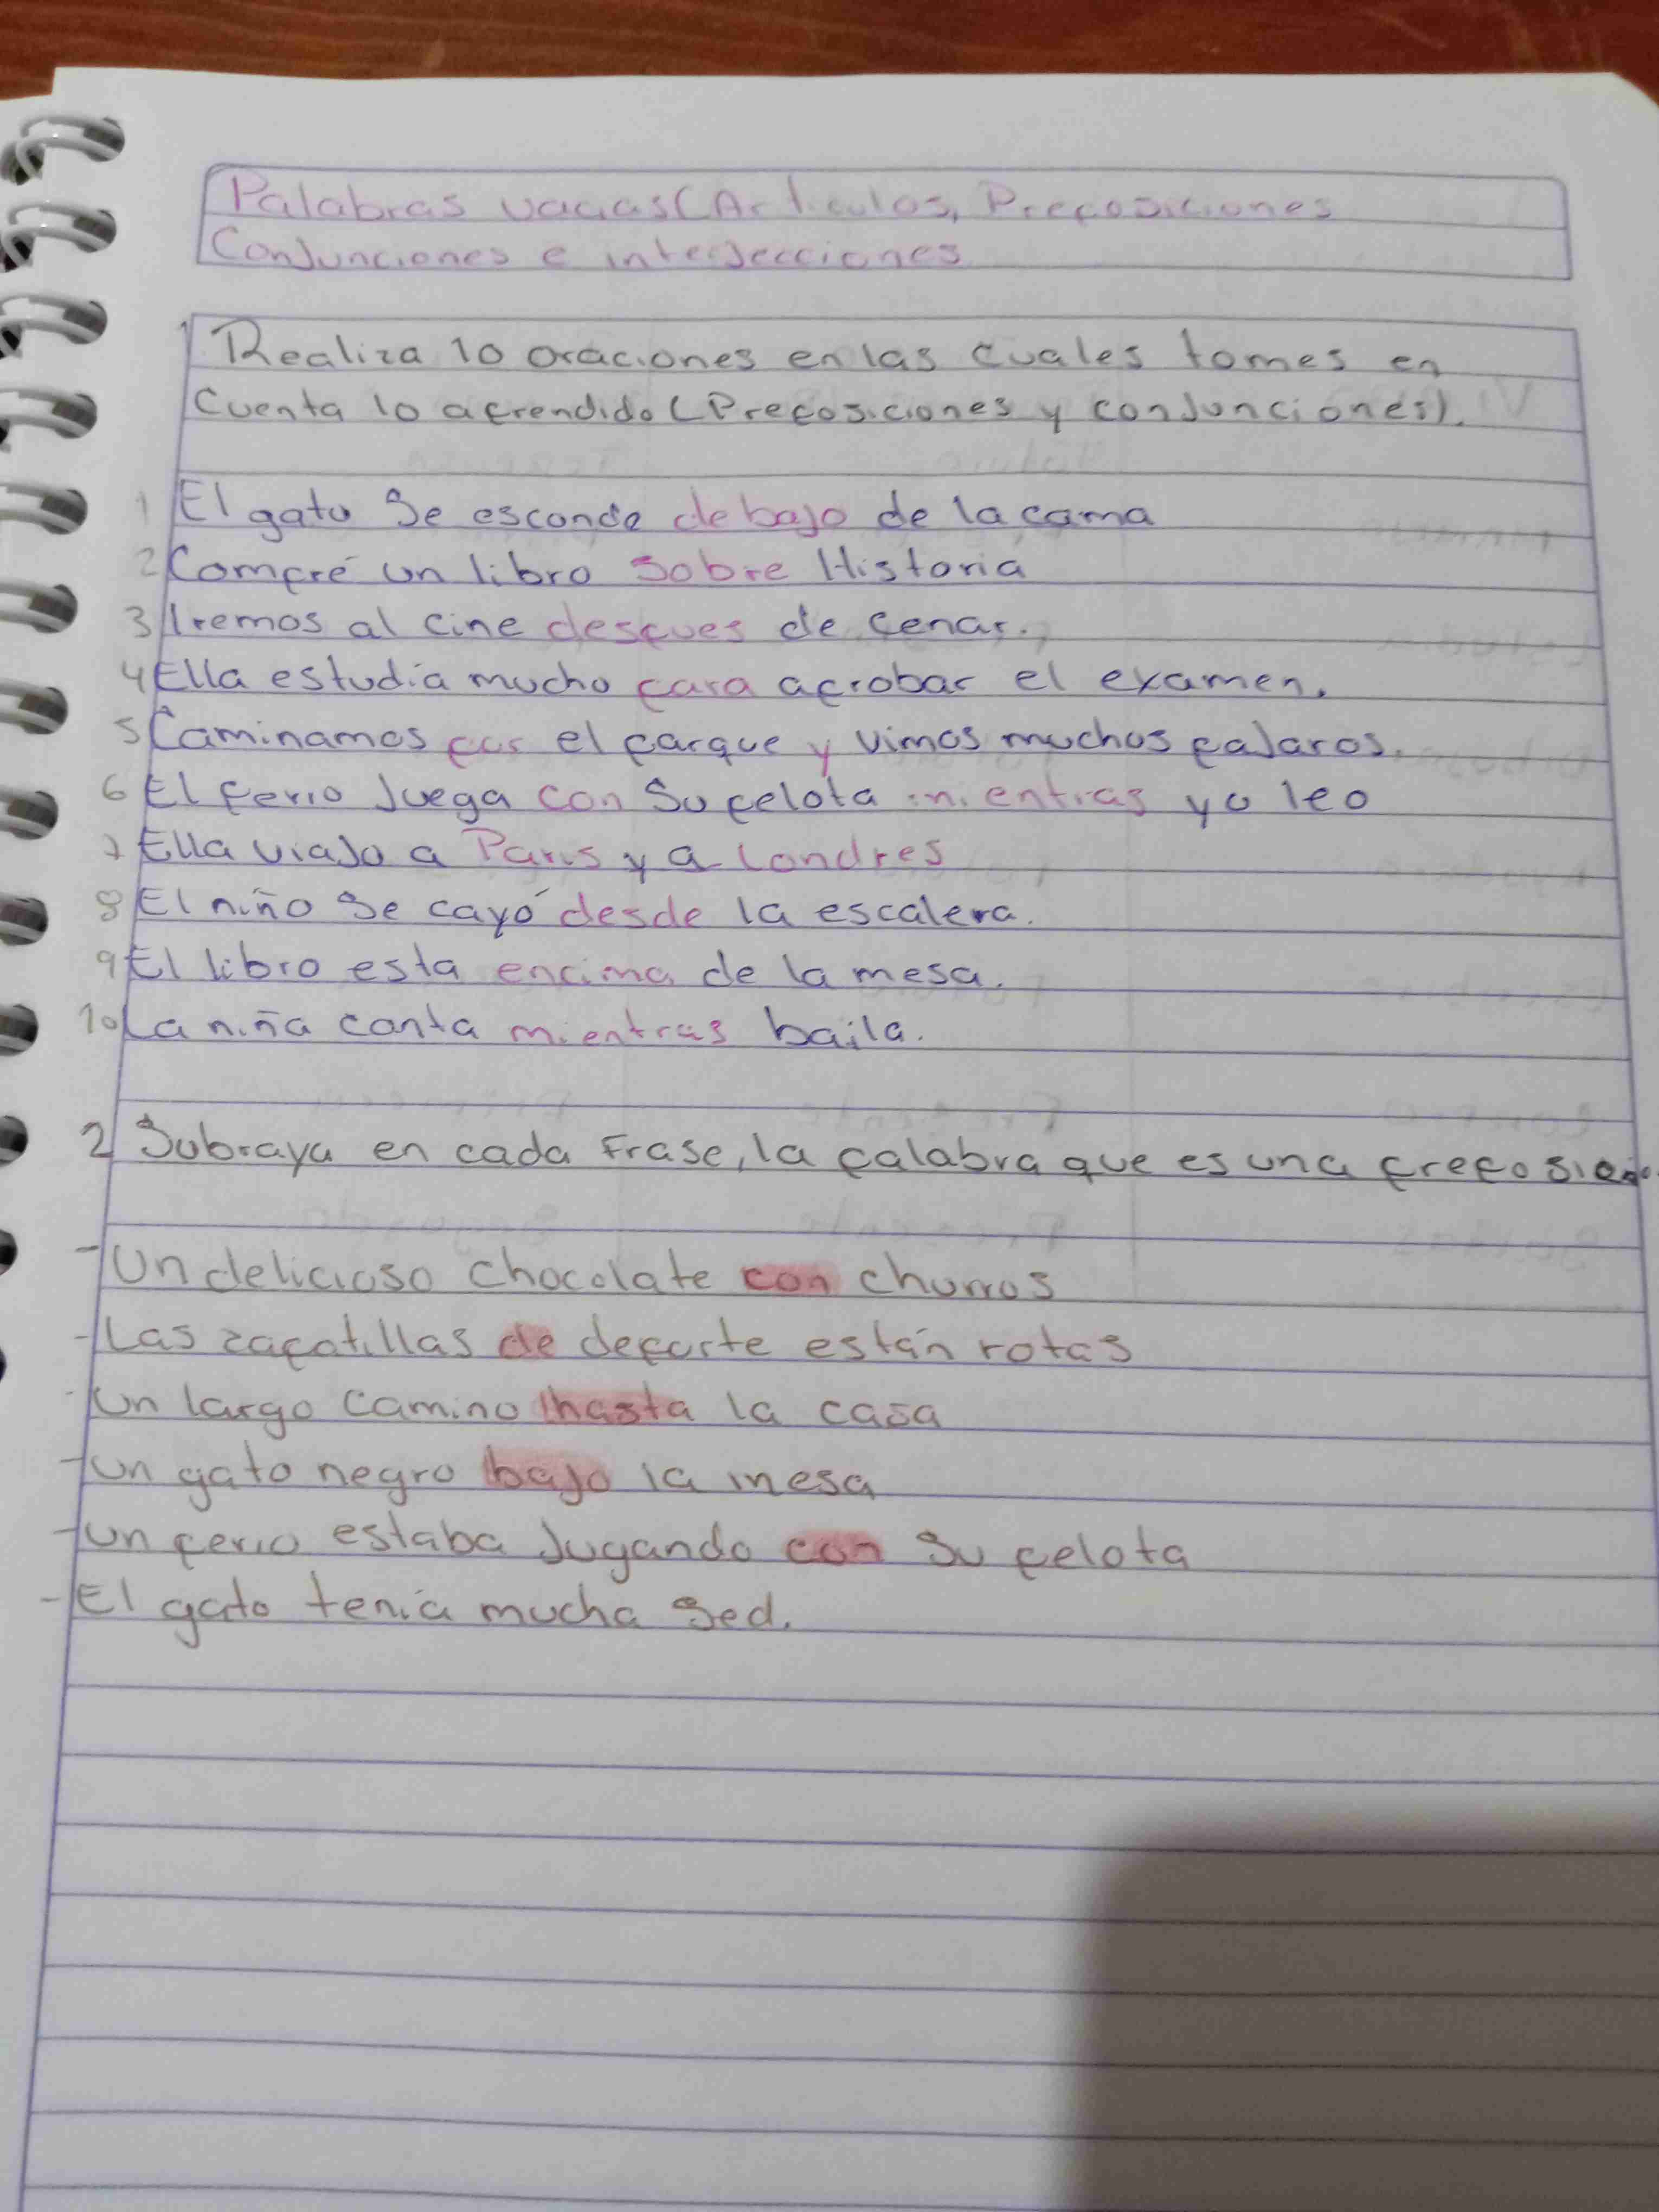 Palabras vacias (Articulos, Preposiciones
Conjunciones e interjecciones
1 Realiza 10 oraciones en las cuales tomes en
cuenta lo aprendido (Preposiciones y conjunciones).
1 El gato se esconde debajo de la cama
2 Compré un libro sobre Historia
3 Iremos al cine despues de cenar.
4 Ella estudia mucho para aprobar el examen.
5 Caminamos por el parque y vimos muchos pajaros.
6 El perro juega con su pelota mientras yo leo
7 Ella viajo a Paris y a Londres
8 El niño se cayó desde la escalera.
9 El libro esta encima de la mesa.
10 La niña canta mientras baila.
2 Subraya en cada frase, la palabra que es una
- Un delicioso chocolate con churros
- Las zapatillas de deporte están rotas
- Un largo camino hasta la casa
- Un gato negro bajo la mesa
- Un perro estaba jugando con su pelota
- El gato tenía mucha sed.